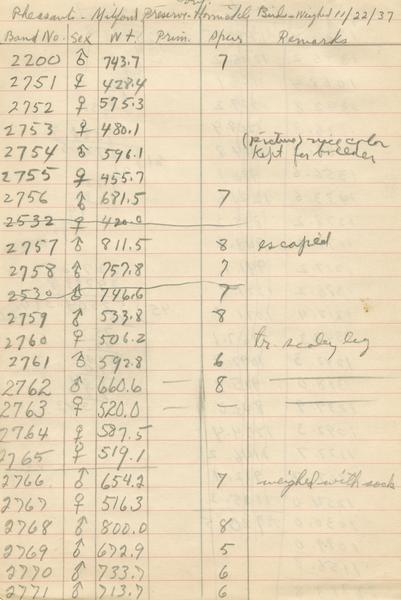 Pheasant - Milford Preserve - Birds - Weighed 11/22/37
Band No. Sex Wt. Prim. Spurs Remarks
2200 ♂ 743.7 7
2751 ♀ 428.4
2752 ♀ 575.3
2753 ♀ 480.1 (picture) nice color
2754 ♂ 596.1 Kept for breeder
2755 ♀ 455.7
2756 ♂ 681.5 7
2532 ♀ 420.0
2757 ♂ 811.5 8 escaped
2758 ♂ 757.8 7
2530 ♂ 746.6 7
2759 ♂ 533.8 8
2760 ♀ 506.2 tr. scaley leg
2761 ♂ 592.8 6
2762 ♂ 660.6 — 8 —
2763 ♀ 520.0 — — —
2764 ♀ 587.5
2765 ♀ 519.1
2766 ♂ 654.2 7 weighed with sock
2767 ♀ 516.3
2768 ♂ 800.0 8
2769 ♂ 672.9 5
2770 ♂ 733.7 6
2771 ♂ 713.7 6